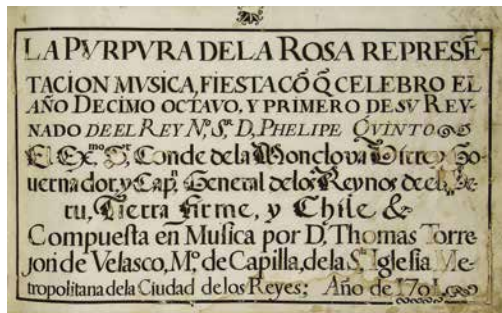 LA PVRPVRA DE LA ROSA REPRESẼ
TACION MVSICA, FIESTA CÕ Q̃ CELEBRO EL
AÑO DECIMO OCTAVO, Y PRIMERO DE SV REY-
NADO DE EL REY N.º S.ʳ D, PHELIPE QVINTO
El Ex.ᵐᵒ S.ʳ Conde de la Monclova Virrey Go-
uernador, y Cap.ⁿ General de los Reynos de el Pe-
ru, Tierra firme, y Chile &
Compuesta en Musica por D. Thomas Torre
jon de Velasco, M.º de Capilla, de la S.ᵗᵃ Iglesia Me-
tropolitana de la Ciudad de los Reyes; Año de 1701